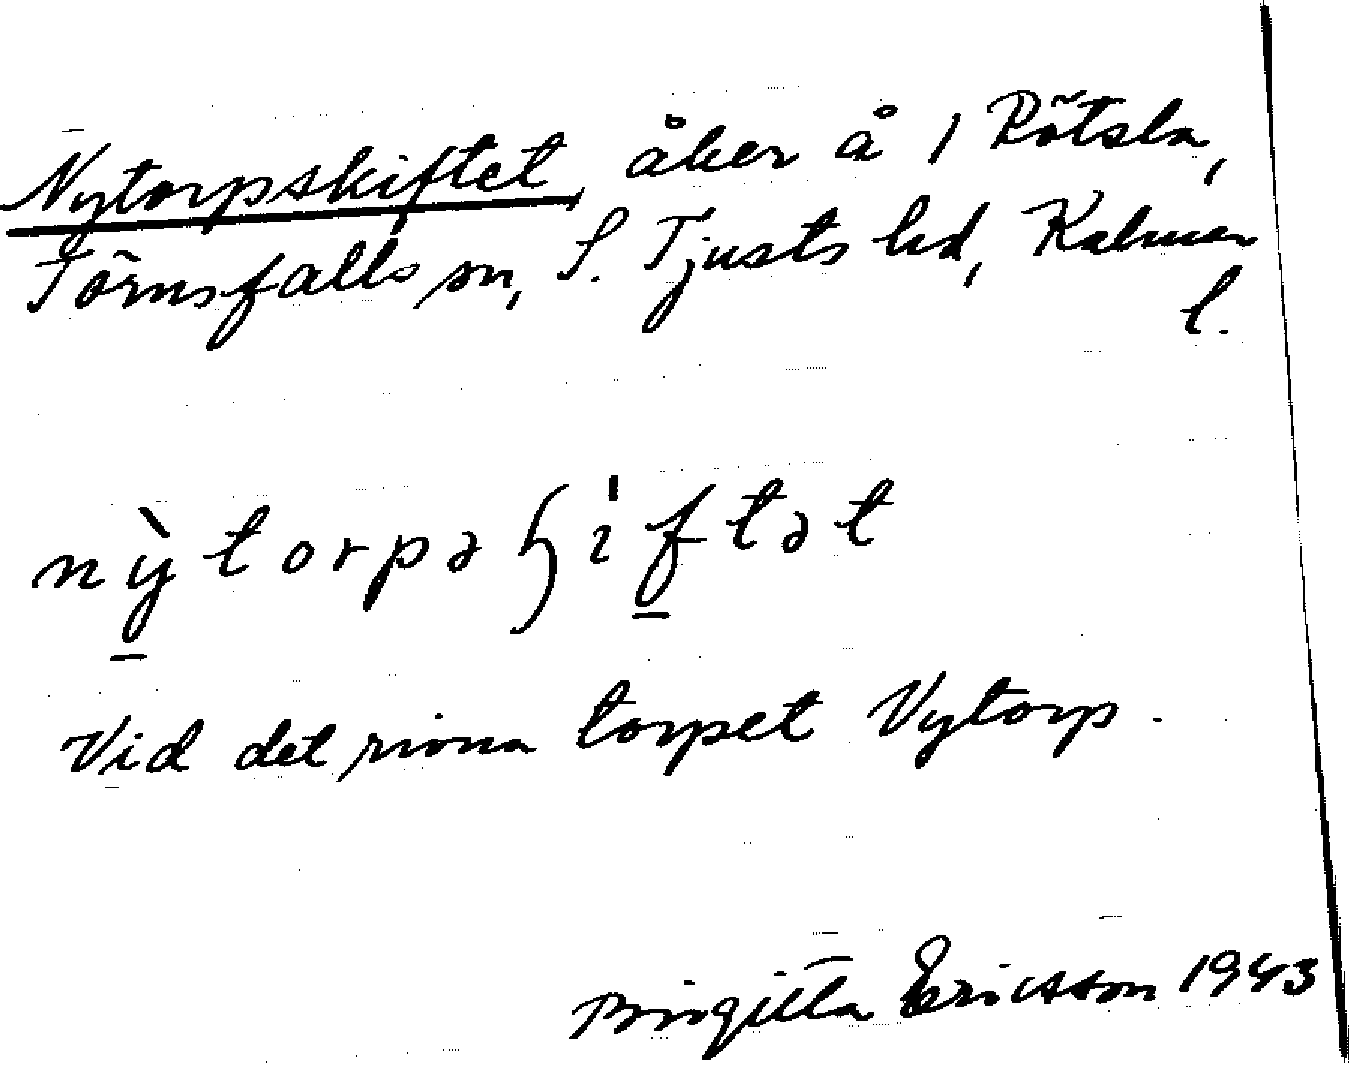 Nytorpskiftet, åker å 1 Rötsla,
Törnsfalls sn, S. Tjusts hd, Kalmar
l.
nỳtorpəɧıftət
Vid det rivna torpet Nytorp.
Birgitta Ericsson 1943